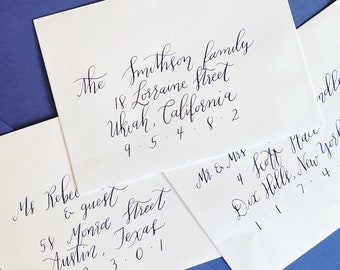 The Smithson family
18 Lorraine Street
Ukiah, California
9 · 5 · 4 · 8 · 2
Ms Rebe
& guest
58 Monroe Street
Austin, Texas
3 · 0 · 1
Mr & Mrs
4 Scott
Dix Hills, New York
1 · 1 · 7 · 4